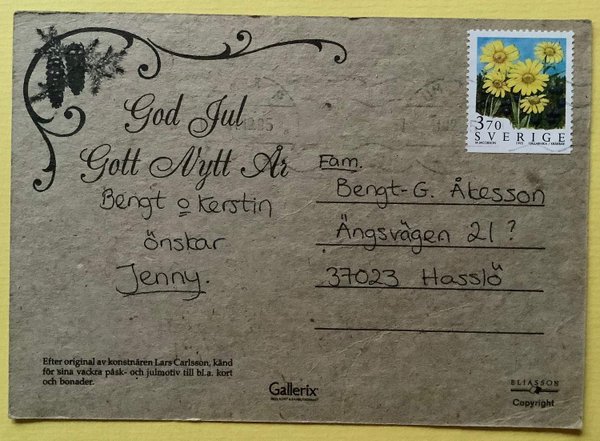 God Jul
Gott Nytt År
Bengt o Kerstin
önskar
Jenny.
Fam.
Bengt-G. Åkesson
Ängsvägen 21?
37023 Hasslö
3 70
SVERIGE
Efter original av konstnären Lars Carlsson, känd
för sina vackra påsk- och julmotiv till bl.a. kort
och bonader.
Gallerix
ELIASSON
Copyright